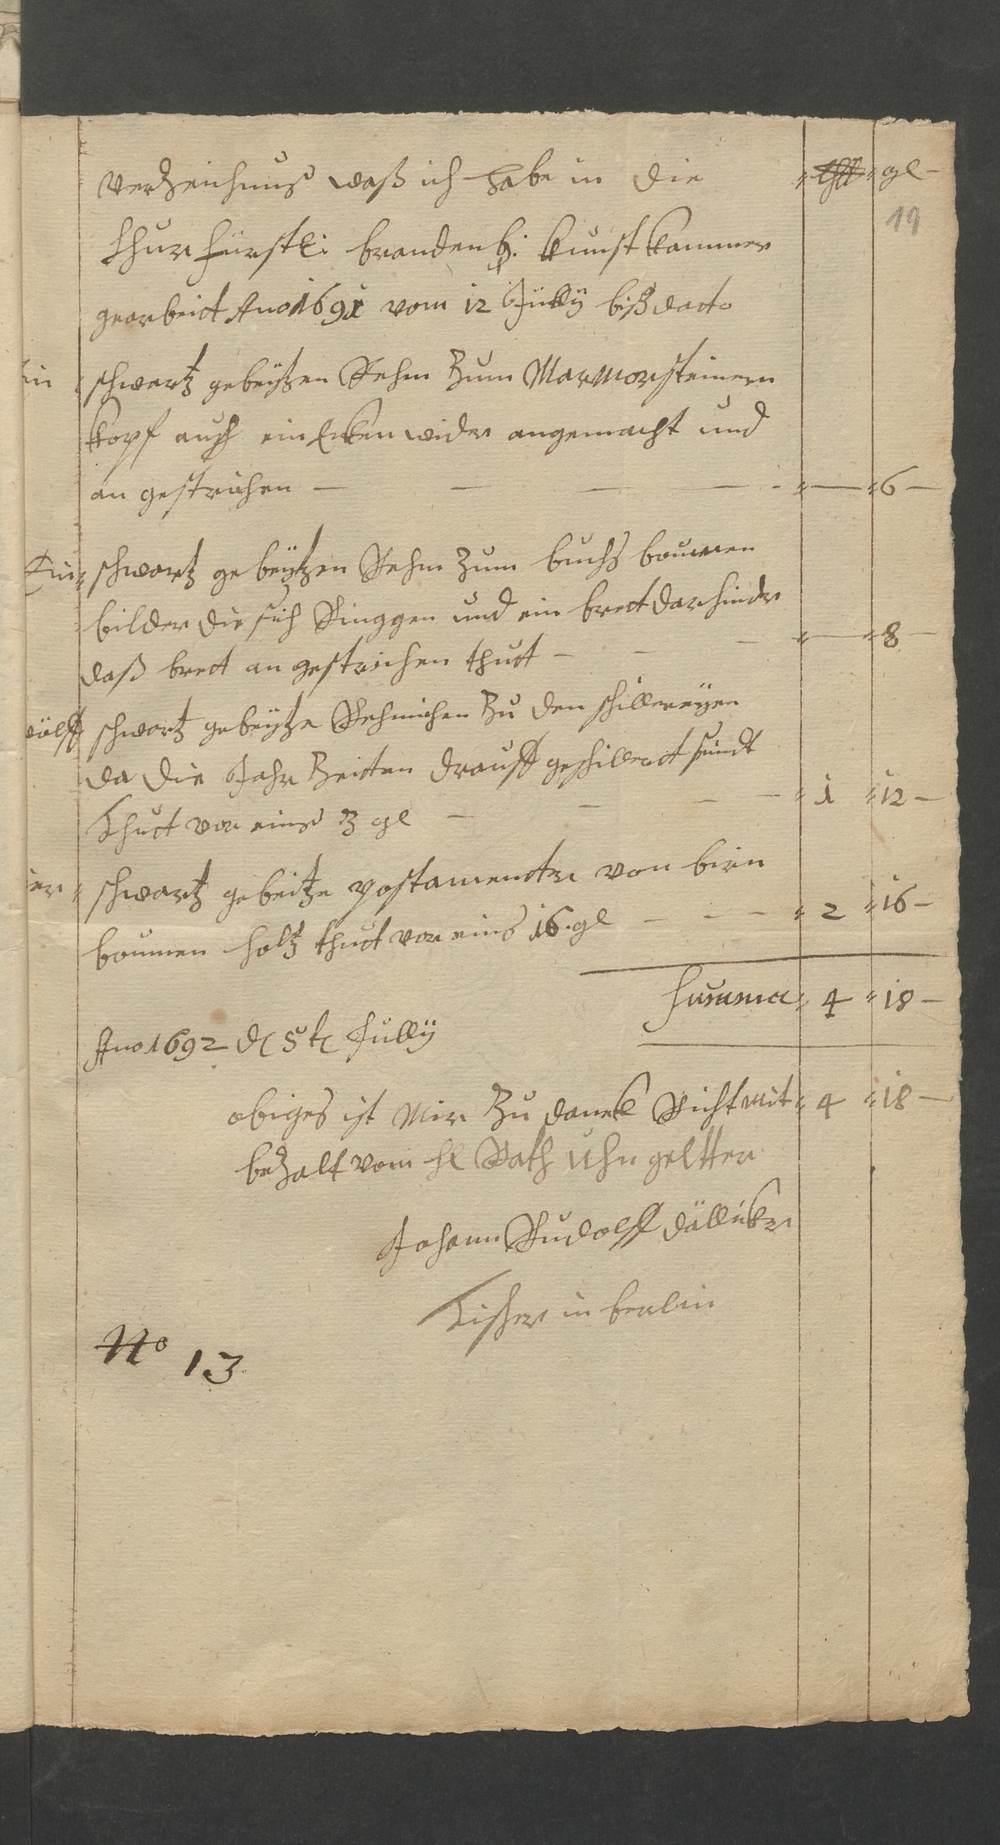 Verzeichnus waß ich habe in die thll gl
19
Churfürstl: brandenb: kunstkammer
gearbeit Ano 1691 vom 12 Jully biß dacto
ein schwartz gebeytzen Rehm zum Marmorsteinern
kopf auch ein Ecken wider angemacht und
an gestrichen — — — — 6 —
Ein schwartz gebeytzen Rehm zum buchs baumen
bilder die sich Ringgen und ein brett darhinder
daß brett an gestrichen thutt — — — 8 —
wölff schwartz gebeytze Rehmichen zu den schillereyen
da die Jahr Zeitten drauff geschillertt sindt
thutt von eins 3 gl — — — — 1 12 —
ier schwartz gebeitze postamenter von birn
baumen holtz thutt von eins 16. gl — — — 2 16 —
Summa 4 18 —
Ano 1692 d 5t Jully
obiges ist Mir zu danck Richt mit 4 18 —
bezalt vom H Rath Uhn geltter
Johann Rudolff Dälliker
Tischer in berlin
No 13